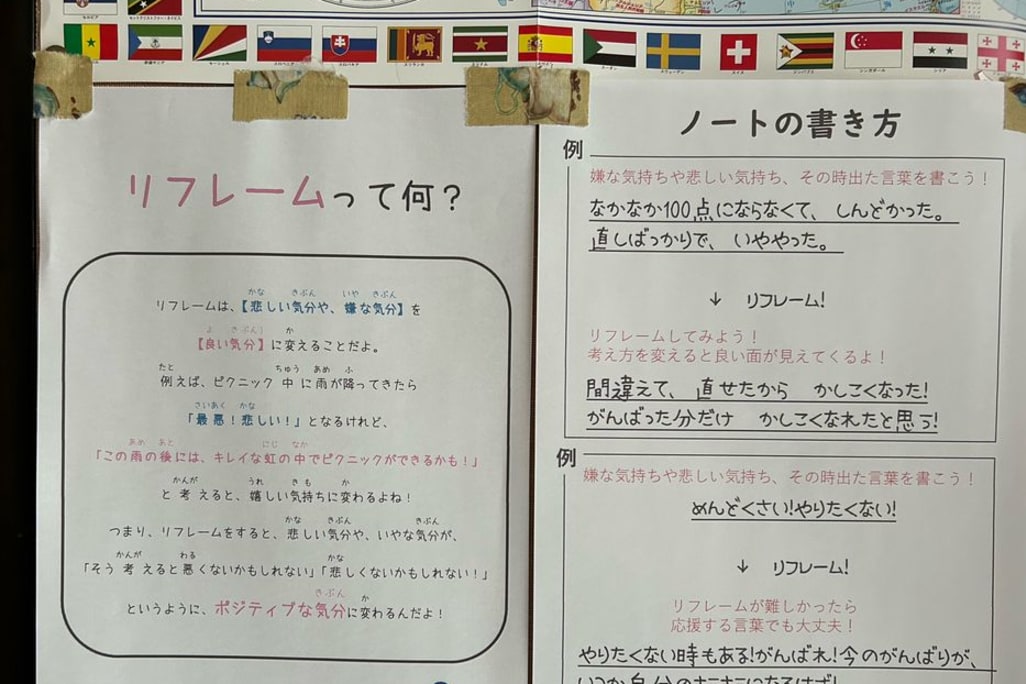 リフレームって何？
リフレームは、【悲しい気分や、嫌な気分】を
【良い気分】に変えることだよ。
例えば、ピクニック中に雨が降ってきたら
「最悪！悲しい！」となるけれど、
「この雨の後には、キレイな虹の中でピクニックができるかも！」
と考えると、嬉しい気持ちに変わるよね！
つまり、リフレームをすると、悲しい気分や、いやな気分が、
「そう考えると悪くないかもしれない」「悲しくないかもしれない！」
というように、ポジティブな気分に変わるんだよ！
ノートの書き方
例
嫌な気持ちや悲しい気持ち、その時出た言葉を書こう！
なかなか100点にならなくて、しんどかった。
直しばっかりで、いややった。
↓ リフレーム!
リフレームしてみよう！
考え方を変えると良い面が見えてくるよ！
間違えて、直せたから かしこくなった!
がんばった分だけ かしこくなれたと思う!
例
嫌な気持ちや悲しい気持ち、その時出た言葉を書こう！
めんどくさい!やりたくない!
↓ リフレーム!
リフレームが難しかったら
応援する言葉でも大丈夫！
やりたくない時もある!がんばれ!今のがんばりが、